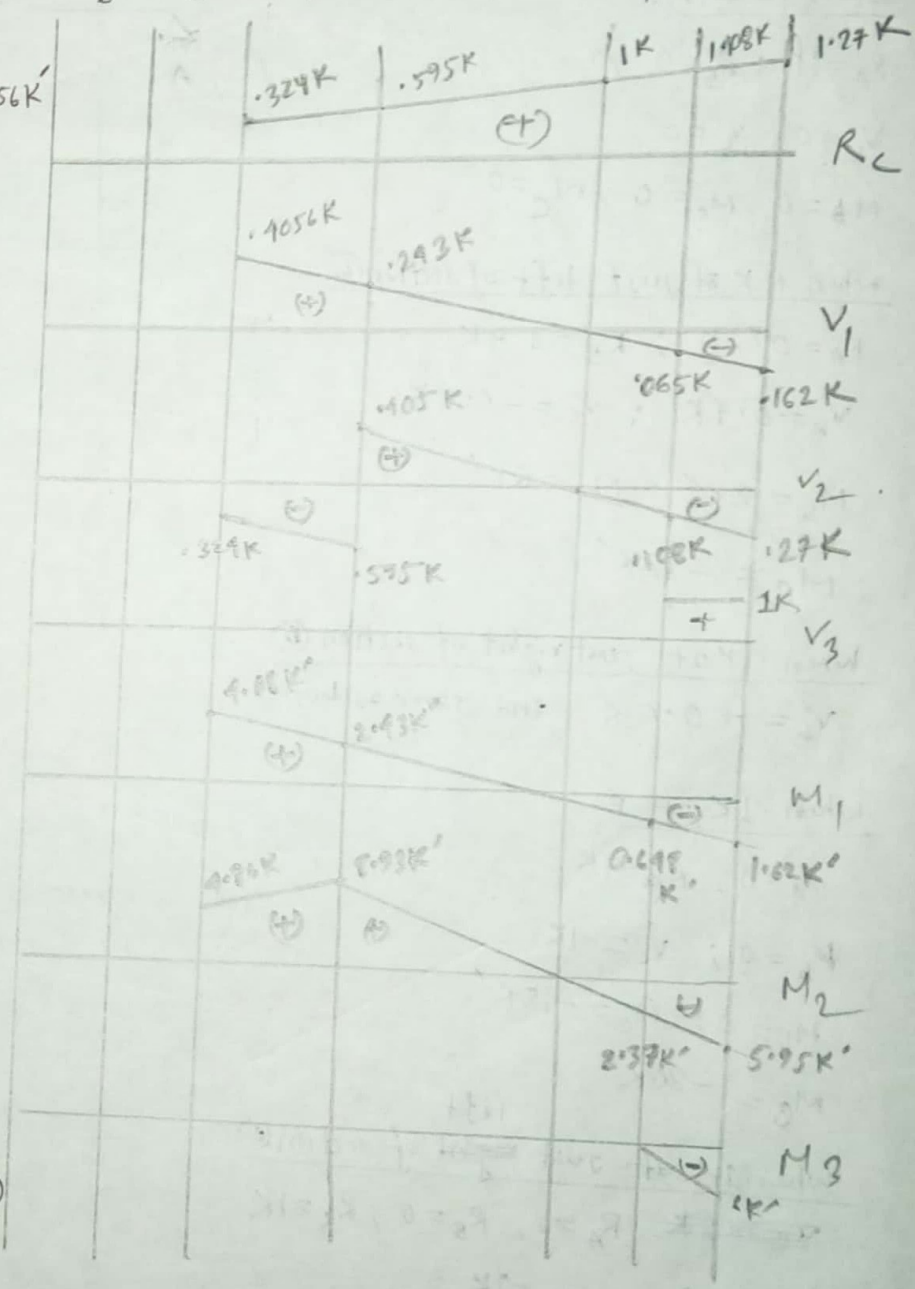 56K'
.324K .595K 1K 1.108K 1.27K
(+)
Rc
.4056K .243K
(+) (-)
V1
.065K .162K
.405K
(+)
V2
(-) (-)
.324K .595K .108K .27K
1K
+
V3
2.43K'
(+)
M1
(-)
1.62K'
4.86K 8.93K'
(+) (+)
M2
(-)
2.37K' 5.95K'
M3
(-)